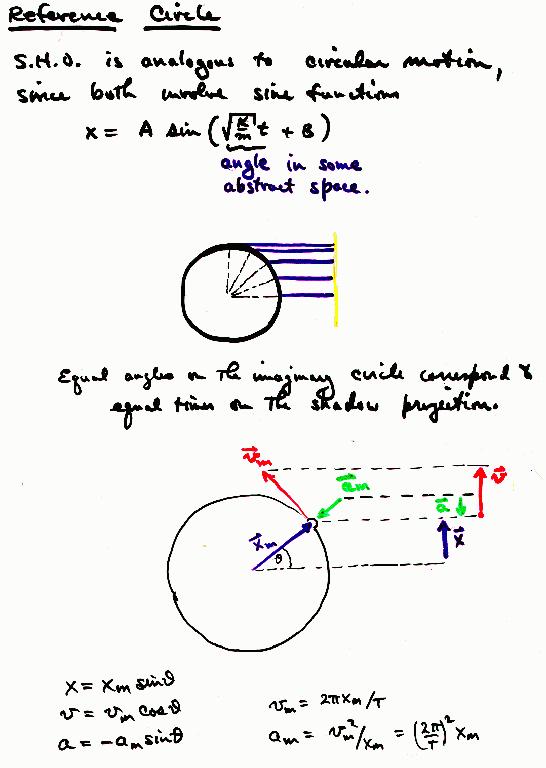 Reference Circle
S.H.O. is analogous to circular motion,
since both involve sine functions
x = A sin (√k/m t + B)
angle in some
abstract space.
Equal angles on the imaginary circle correspond to
equal times on the shadow projection.
v⃗m
a⃗m
v⃗
a⃗
x⃗m
x⃗
θ
x = xm sinθ
v = vm cosθ
a = -am sinθ
vm = 2πxm/T
am = vm²/xm = (2π/T)² xm